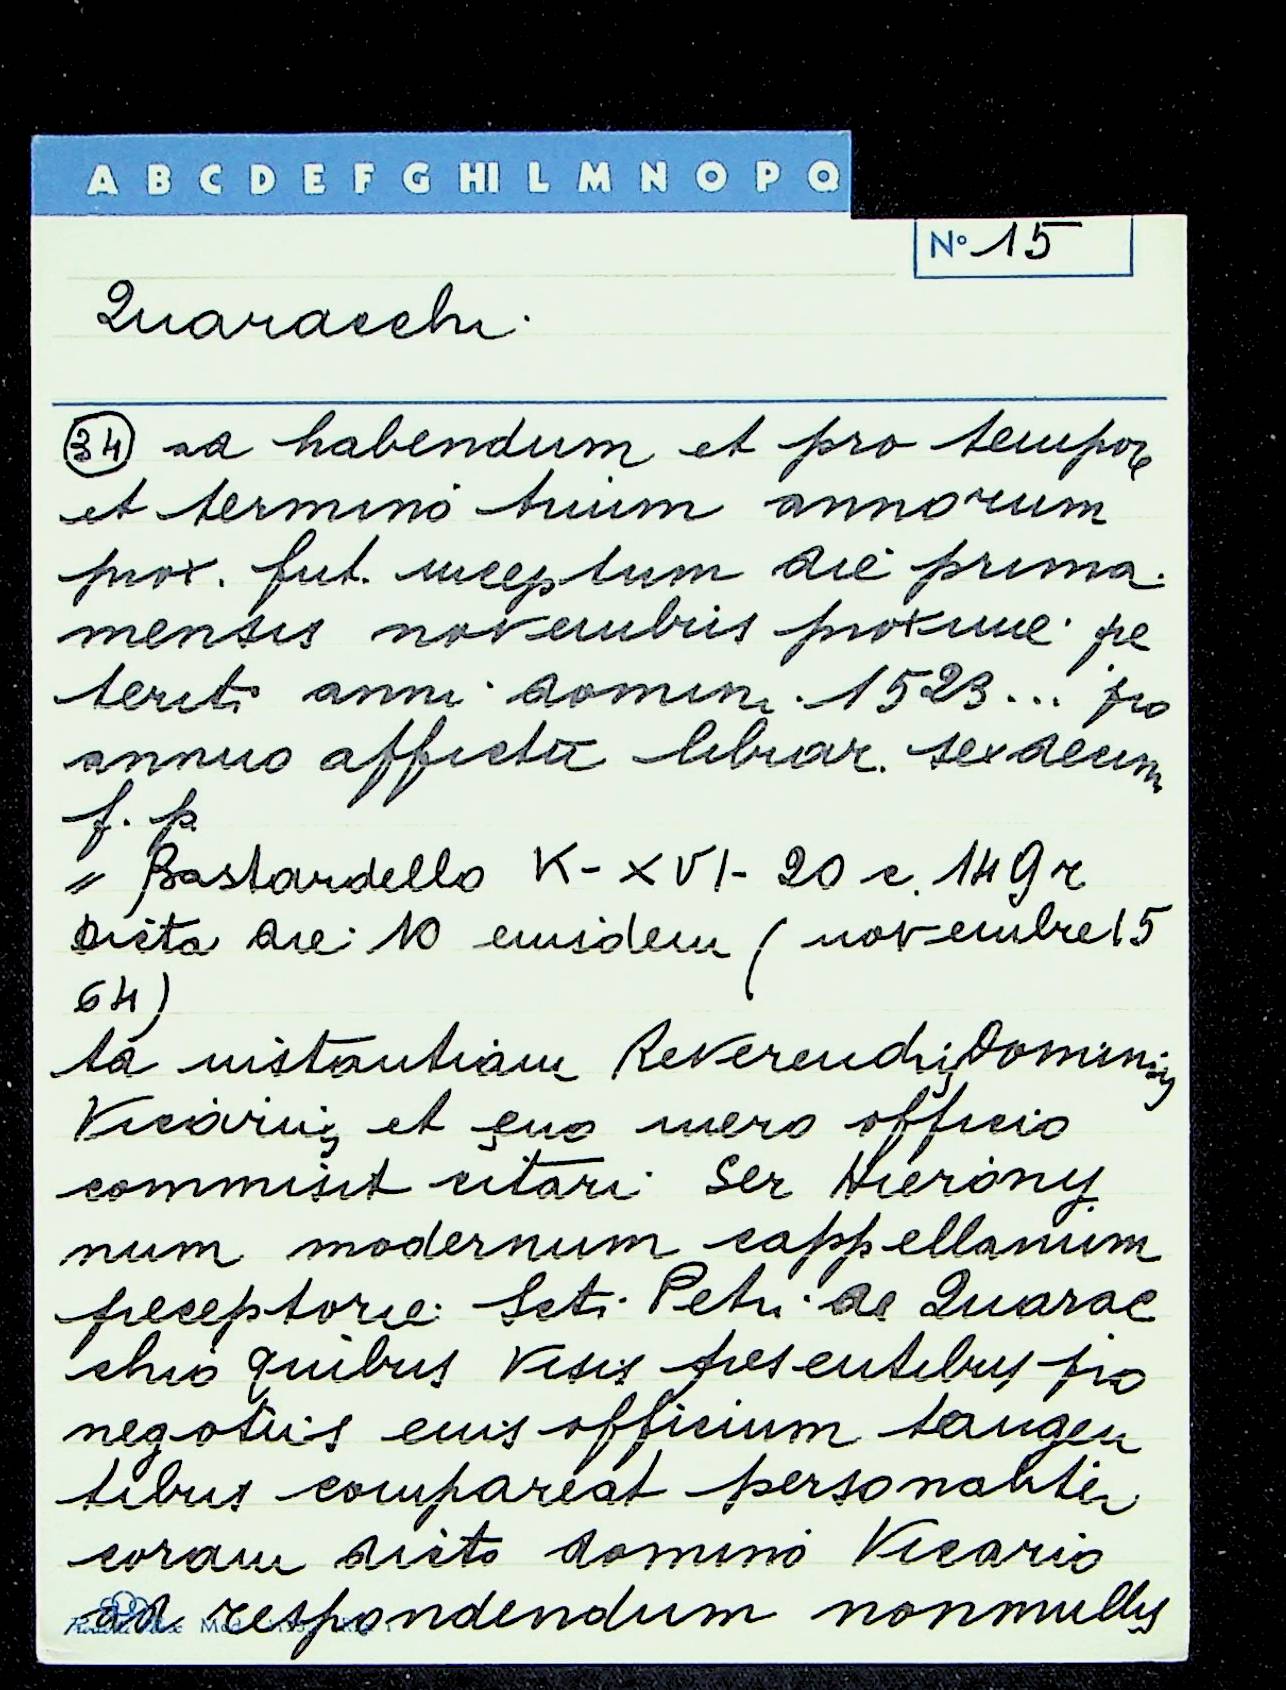 A B C D E F G HI L M N O P Q
N° 15
Quaracchi.
34 ad habendum et pro tempore
et termino trium annorum
prox. fut. inceptum die prima
mensis novembris proxime pe
teriti anni domini 1523... pro
annuo affictu librar. sexdecim
f. p.
" Bastardello K-XVI-20 c. 149r
Dicta die 10 eiusdem (novembre 15
64)
ta instantiam Reverendi Domini
Vicarii et suo mero officio
commisit citari Ser Hierony
num modernum cappellanum
preceptorie Scti Petri de Quarac
chio quibus visis presentibus pro
negotiis eius officium tangen
tibus compareat personaliter
coram dicto domino Vicario
ad respondendum nonnullis